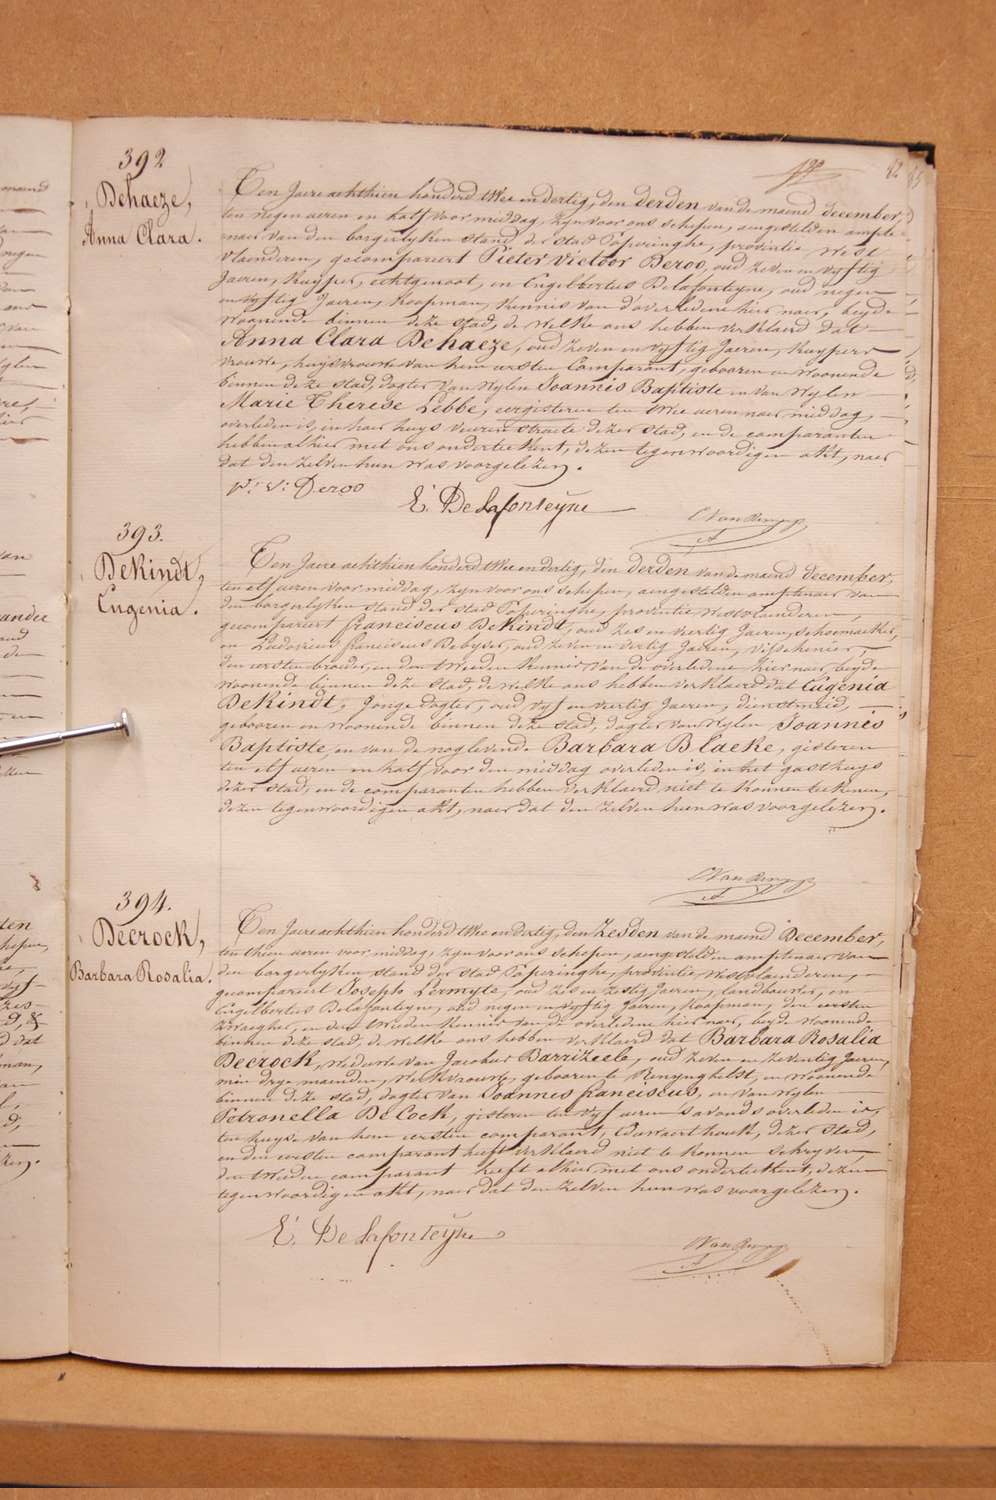 82
392
Dehaeze,
Anna Clara.
Ten Jaere achthien honderd twee en dertig, den derden van de maend december,
ten negen aeren en half voor middag, zijn voor ons schepen, aengestelden ampte-
naer van den borgerlyken stand, der stad Poperinghe, provintie West
vlaenderen, gecompareert Pieter Victoor Deroo, oud zeven en vyftig
Jaeren, kuyper, echtgenoot, en Engelbertus Delafonteyne, oud negen
en vyftig Jaeren, koopman, kennis van d'overledene hier naer, beyde
woonende binnen deze stad, de welke ons hebben verklaerd dat
Anna Clara Dehaeze, oud zeven en vyftig Jaeren, kuypers
vrouwe, huysvrouwe van hem eersten Comparant, gebooren en woonende
binnen deze stad, dogter van wylen Joannis Baptiste en van wylen
Marie Therese Lebbe, eergisteren ten twee aeren naer middag,
overleden is, in haer huys veuren straete dezer stad, en de comparanten
hebben alhier met ons onderteekent, dezen tegenwoordigen akt, naer
dat den zelven hun was voorgelezen.
pr. V: Deroo
E. De Lafonteyne
393.
Dekindt,
Eugenia.
Ten Jaere achthien honderd twee en dertig, den derden van de maend december,
ten elf aeren voor middag, zyn voor ons schepen, aengestelden amptenaer van
den borgerlyken stand der stad Poperinghe, provintie Westvlaenderen,
gecompareert franciscus Dekindt, oud zes en veertig Jaeren, schoemaeker,
en Ludovicus franciscus Debyser, oud zeven en dertig Jaeren,
den eersten broeder, en den tweeden kennis van de overledene hier naer, beyde
woonende binnen deze stad, de welke ons hebben verklaerd dat Eugenia
Dekindt, jonge dogter, oud vyf en veertig Jaeren, dienstmeid,
gebooren en woonende binnen deze stad, dogter van wylen Joannis
Baptiste, en van de nog levende Barbara Blaeke, gisteren
ten elf aeren en half voor den middag overleden is, in het gasthuys
dezer stad, en de comparanten hebben verklaerd niet te konnen teekenen,
dezen tegenwoordigen akt, naer dat den zelven hun was voorgelezen.
394.
Decrock,
Barbara Rosalia.
Ten Jaere achthien honderd twee en dertig, den zesden van de maend December,
ten thien aeren voor middag, zyn voor ons schepen, aengestelden amptenaer van
den borgerlyken stand der stad Poperinghe, provintie Westvlaenderen,
gecompareert Joseph Lermyte, oud zes en zestig Jaeren, landbouwer, en
Engelbertus Delafonteyne, oud negen en vyftig Jaeren, koopman, den eersten
zwaegher, en den tweeden kennis van de overledene hier naer, beyde woonende
binnen deze stad, de welke ons hebben verklaerd dat Barbara Rosalia
Decrock, weduwe van Jacobus Barrizeele, oud zeven en zeventig Jaeren,
min drye maenden, werkvrouwe, gebooren te Renynghelst, en woonende
binnen deze stad, dogter van Joannes franciscus, en van wylen
Petronella De Cock, gisteren ten vyf aeren s'avonds overleden is,
ten huyse van hem eersten comparant, dezer stad,
en den eersten comparant heeft verklaerd niet te konnen schryven,
den tweeden comparant heeft alhier met ons onderteekent, dezen
tegenwoordigen akt, naer dat den zelven hun was voorgelezen.
E. De Lafonteyne